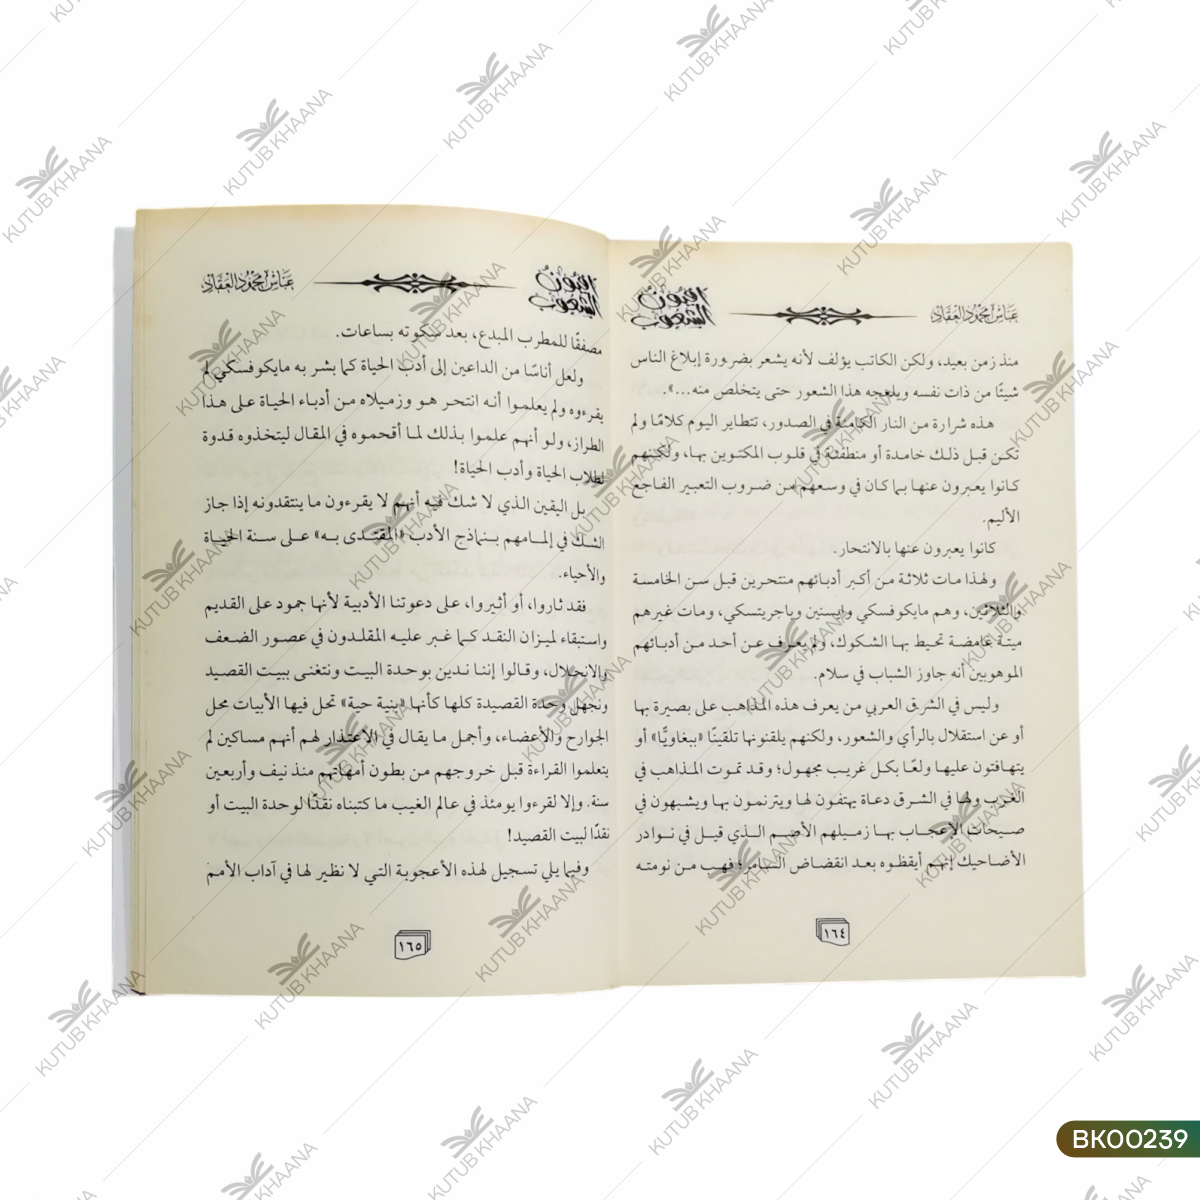 عباس محمود العقاد
أفيون الشعوب
منذ زمن بعيد، ولكن الكاتب يؤلف لأنه يشعر بضرورة إبلاغ الناس
شيئًا من ذات نفسه ويلعجه هذا الشعور حتى يتخلص منه...».
هذه شرارة من النار الكامنة في الصدور، تتطاير اليوم كلامًا ولم
تكن قبل ذلك خامدة أو منطفئة في قلوب المكتوين بها، ولكنهم
كانوا يعبرون عنها بما كان في وسعهم من ضروب التعبير الفاجع
الأليم.
كانوا يعبرون عنها بالانتحار.
ولهذا مات ثلاثة من أكبر أدبائهم منتحرين قبل سن الخامسة
والثلاثين، وهم مايكوفسكي وايسنين وباجريتسكي، ومات غيرهم
ميتة غامضة تحيط بها الشكوك، ولم يعرف عن أحد من أدبائهم
الموهوبين أنه جاوز الشباب في سلام.
وليس في الشرق العربي من يعرف هذه المذاهب على بصيرة بها
أو عن استقلال بالرأي والشعور، ولكنهم يلقنونها تلقينًا «ببغاويًا» أو
يتهافتون عليها ولعًا بكل غريب مجهول؛ وقد تموت المذاهب في
الغرب ولها في الشرق دعاة يهتفون لها ويترنمون بها ويشبهون في
صيحات الإعجاب بها زميلهم الأصم الذي قيل في نوادر
الأضاحيك إنهم أيقظوه بعد انقضاض السامر؛ فهب من نومته
١٦٤
أفيون الشعوب
عباس محمود العقاد
مصفقًا للمطرب المبدع، بعد سكوته بساعات.
ولعل أناسًا من الداعين إلى أدب الحياة كما بشر به مايكوفسكي لم
يقرءوه ولم يعلموا أنه انتحر هو وزميلاه من أدباء الحياة على هذا
الطراز، ولو أنهم علموا بذلك لما أقحموه في المقال ليتخذوه قدوة
لطلاب الحياة وأدب الحياة!
بل اليقين الذي لا شك فيه أنهم لا يقرءون ما ينتقدونه إذا جاز
الشك في إلمامهم بنماذج الأدب «المقتدى به» على سنة الحياة
والأحياء.
فقد ثاروا، أو أثيروا، على دعوتنا الأدبية لأنها جمود على القديم
واستبقاء لميزان النقد كما غبر عليه المقلدون في عصور الضعف
والانحلال، وقالوا إننا ندين بوحدة البيت ونتغنى ببيت القصيد
ونجهل وحدة القصيدة كلها كأنها «بنية حية» تحل فيها الأبيات محل
الجوارح والأعضاء، وأجمل ما يقال في الاعتذار لهم أنهم مساكين لم
يتعلموا القراءة قبل خروجهم من بطون أمهاتهم منذ نيف وأربعين
سنة. وإلا لقرءوا يومئذ في عالم الغيب ما كتبناه نقدًا لوحدة البيت أو
نقدًا لبيت القصيد!
وفيما يلي تسجيل لهذه الأعجوبة التي لا نظير لها في آداب الأمم
١٦٥
KUTUB KHAANA
BK00239